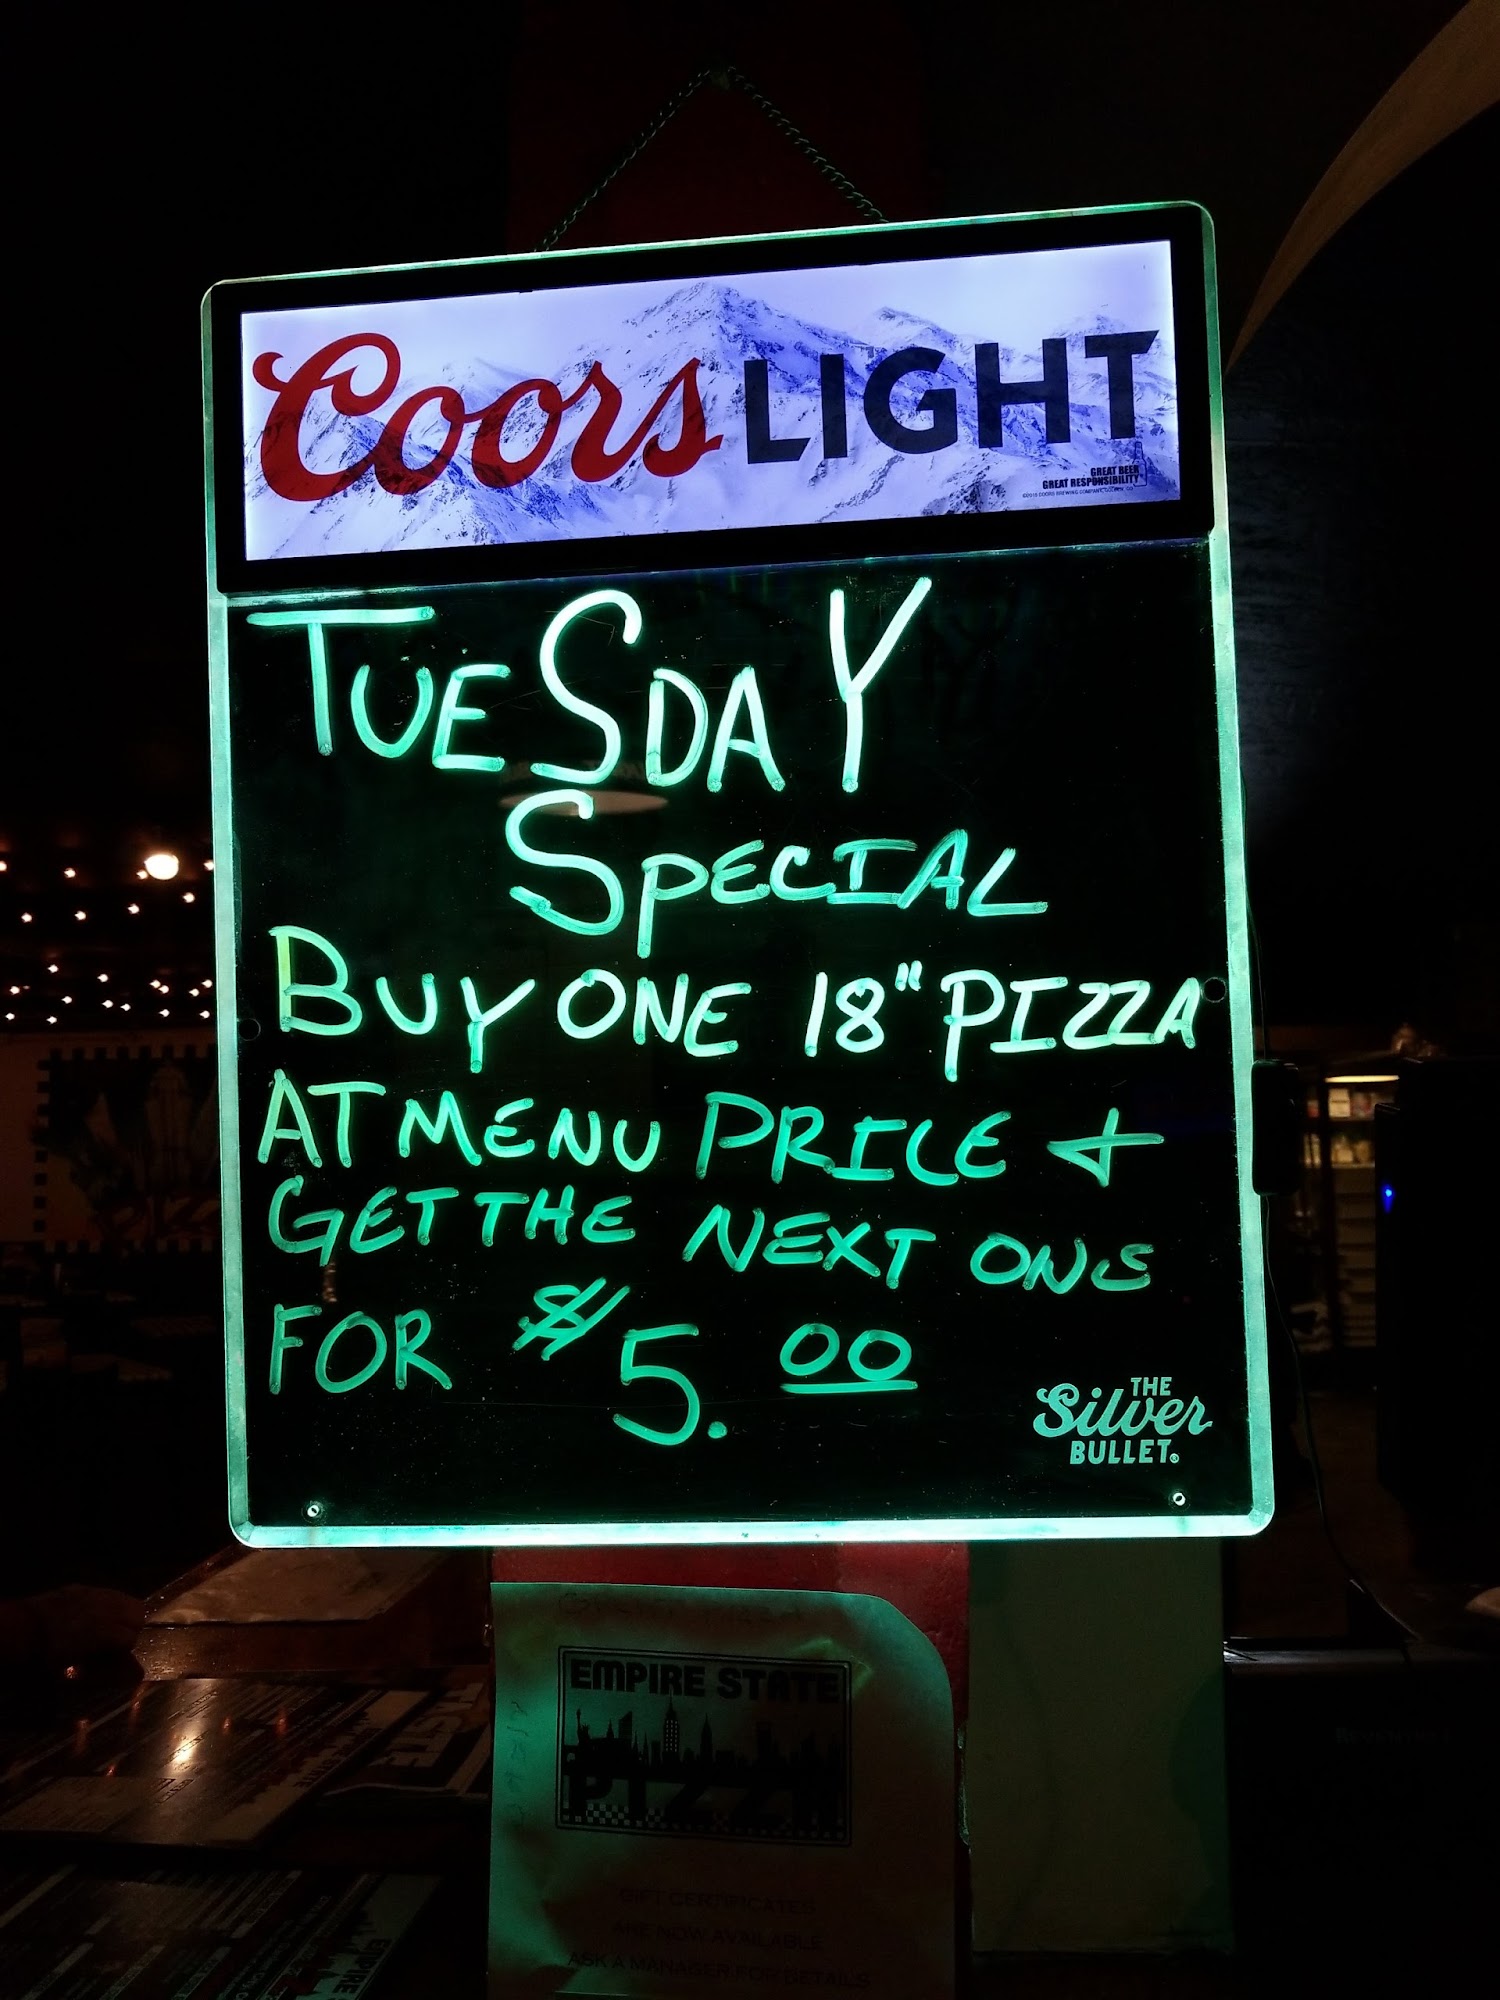 Coors LIGHT
GREAT BEER
GREAT RESPONSIBILITY
TUESDAY
SPECIAL
BUY ONE 18" PIZZA
AT MENU PRICE +
GET THE NEXT ONE
FOR $5.00
THE
Silver
BULLET®
EMPIRE STATE
PIZZA
GIFT CERTIFICATES
ARE NOW AVAILABLE
ASK A MANAGER FOR DETAILS
TASTE
EMPIRE